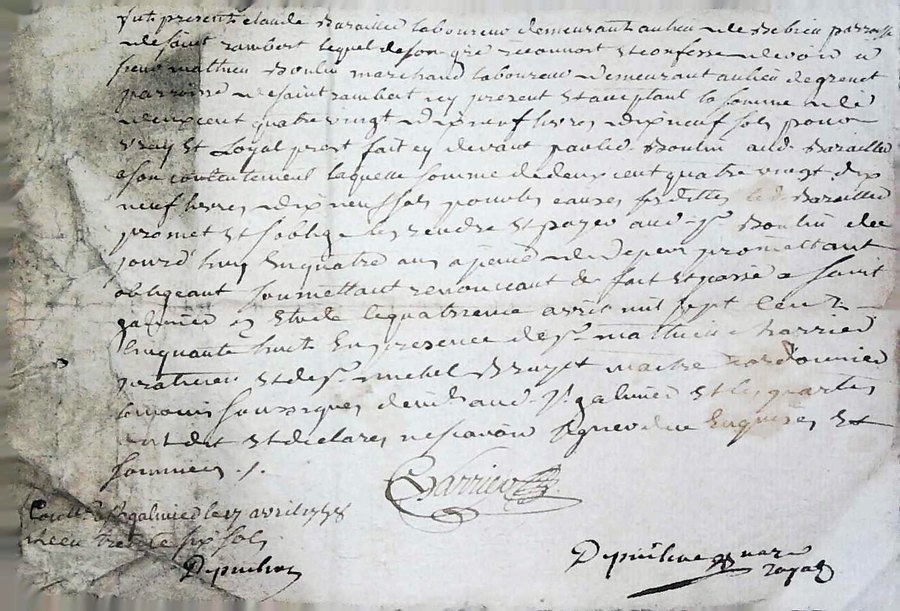 fut present claude Barailler laboureur demeurant au lieu de Bebieu parroisse
de saint rambert lequel de son gré reconnoit et confesse devoir a
sieur mathieu Boulin marchand laboureur demeurant au lieu de grenet
parroisse de saint rambert icy present et acceptant la somme de
deux cent quatre vingt dix neuf livres dix neuf sols pour
vray et Loyal prest fait cy devant par led. Boulin aud. Barailler
a son contentement laquelle somme de deux cent quatre vingt dix
neuf livres dix neuf sols pour les causes susdittes led. Barailler
promet et s'oblige les rendre et payer aud. sr. Boulin de ce
jourd'huy En quatre ans a peine de depens promettant
obligeant soumettant renoncant &c fait et passé a saint
galmier en Etude le quatrieme avril mil sept Cent
Cinquante huit En presence de sr. mathieu Charrier
praticien et de sr. michel Bruyet maitre cordonnier
temoins soussignes de mi aud. St. galmier et les parties
ont dit et declaré ne scavoir signer de ce Enquises et
sommées ./.
Carrier
Conllé a St galmier le 17 avril 1758
Receu trente six sols
Depuchos
Depuchos nore
royal